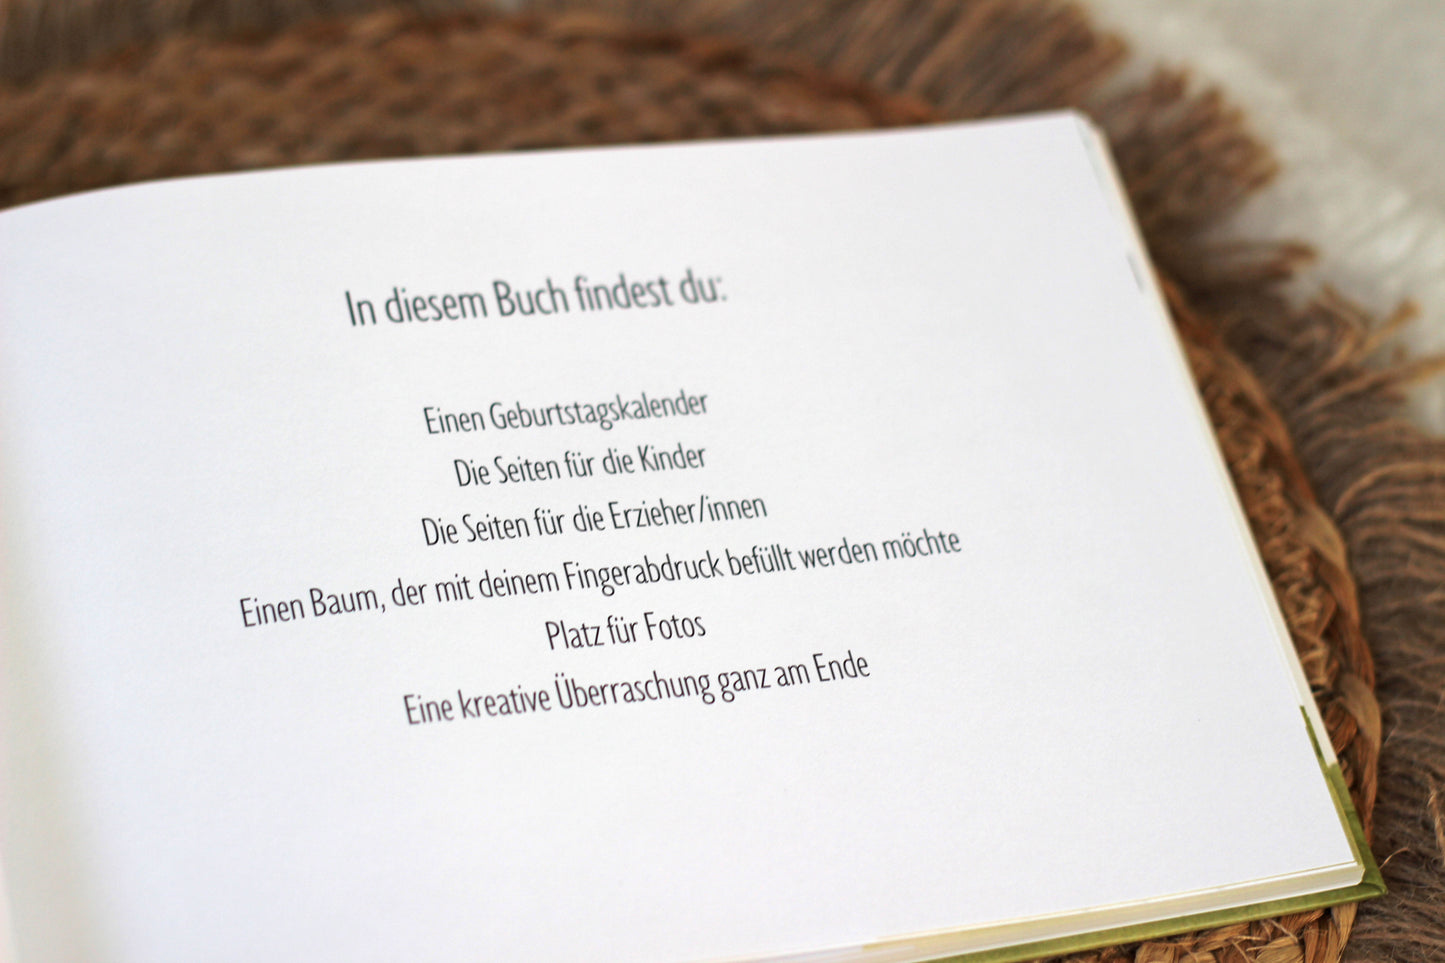 In diesem Buch findest du:
Einen Geburtstagskalender
Die Seiten für die Kinder
Die Seiten für die Erzieher/innen
Einen Baum, der mit deinem Fingerabdruck befüllt werden möchte
Platz für Fotos
Eine kreative Überraschung ganz am Ende